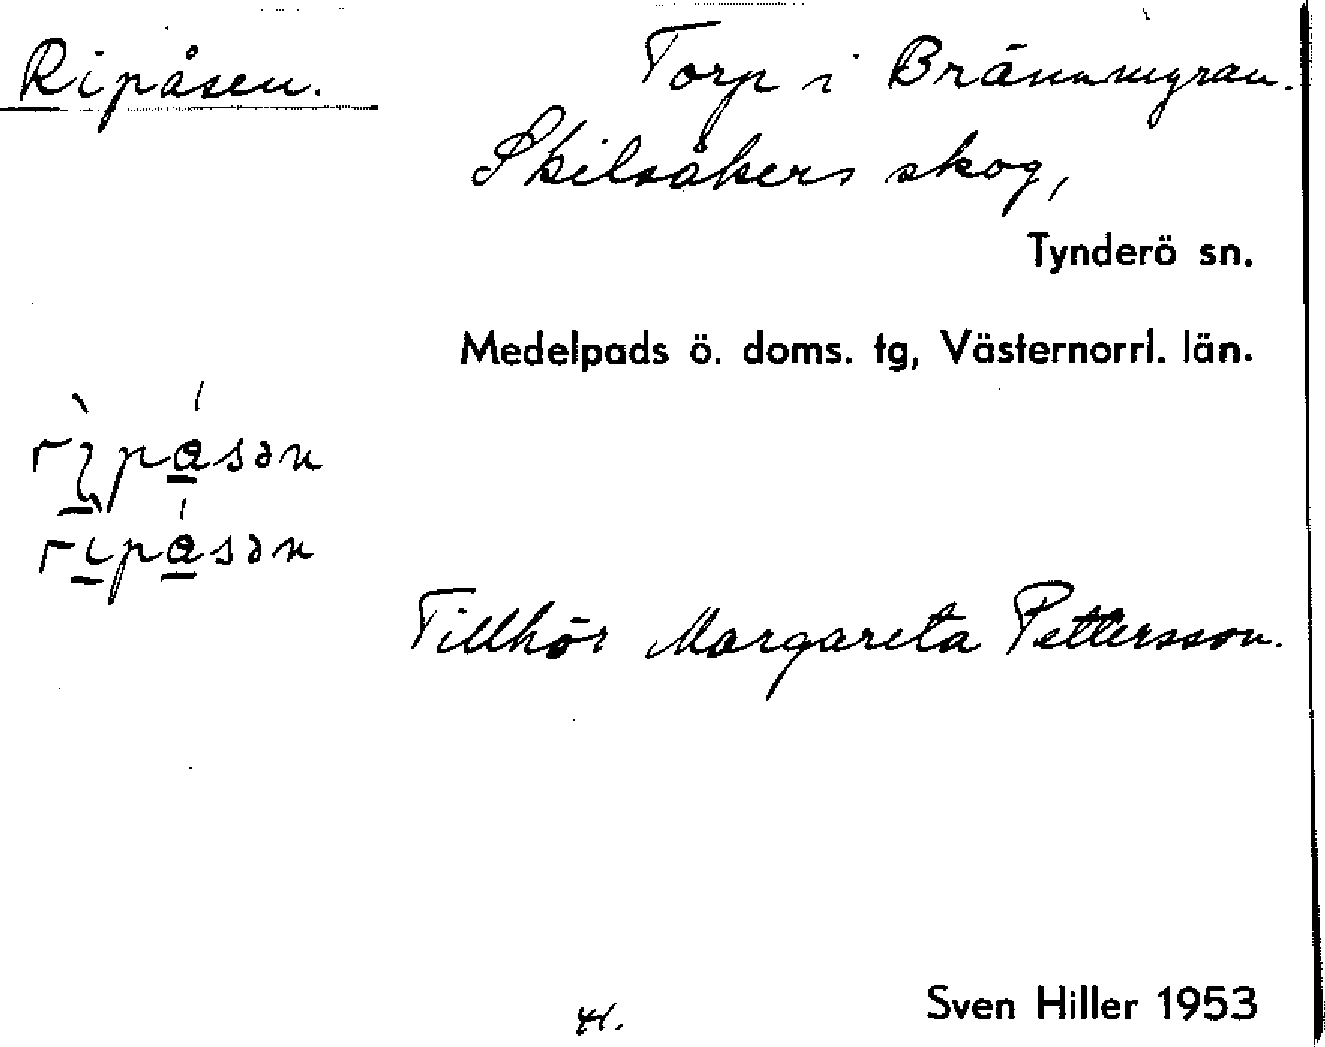 Ripåsen.
Torp i Brännmyran.
Skilsåkers skog,
Tynderö sn.
Medelpads ö. doms. tg, Västernorrl. län.
ripåsən
Tillhör Margareta Pettersson.
Sven Hiller 1953